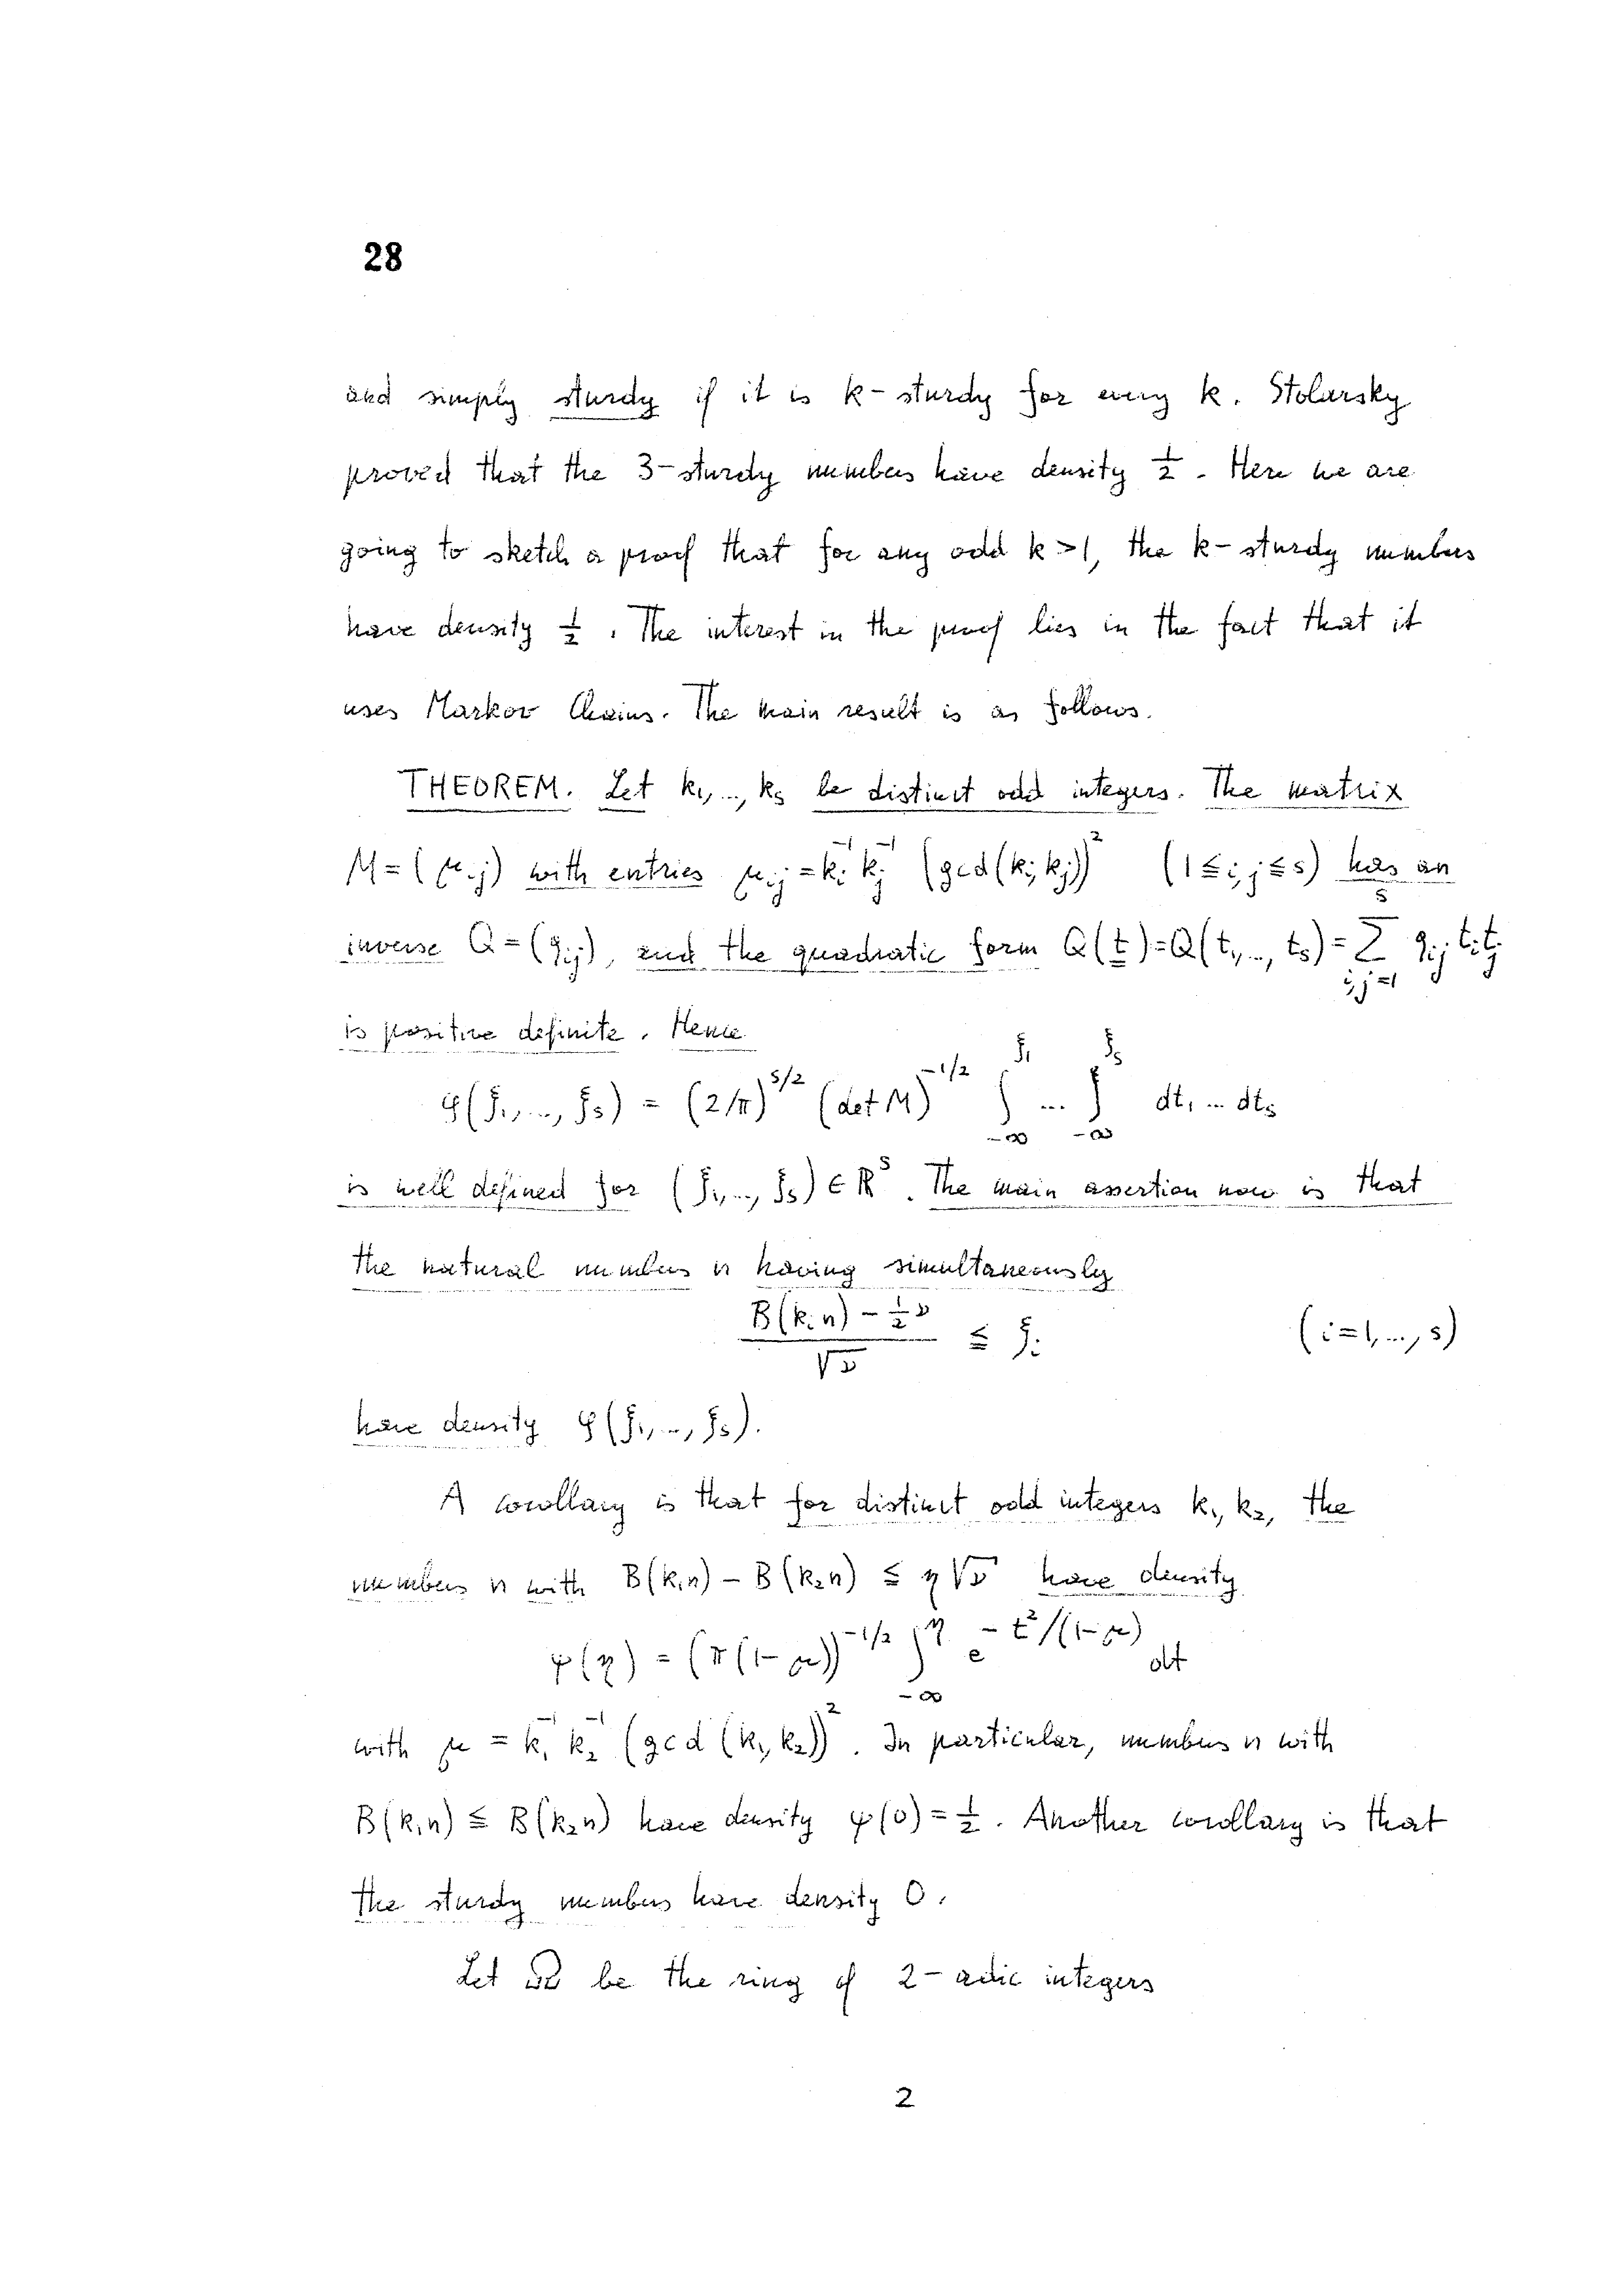 28
and simply sturdy if it is k-sturdy for every k. Stolarsky
proved that the 3-sturdy numbers have density 1/2. Here we are
going to sketch a proof that for any odd k > 1, the k-sturdy numbers
have density 1/2. The interest in the proof lies in the fact that it
uses Markov Chains. The main result is as follows.
THEOREM. Let k₁,..., kₛ be distinct odd integers. The matrix
M = (μᵢⱼ) with entries μᵢⱼ = kᵢ⁻¹ kⱼ⁻¹ (gcd(kᵢ, kⱼ))² (1 ≤ i, j ≤ s) has an
inverse Q = (qᵢⱼ), and the quadratic form Q(t) = Q(t₁,..., tₛ) = Σ_{i,j=1}^{s} qᵢⱼ tᵢ tⱼ
is positive definite. Hence
φ(ξ₁,..., ξₛ) = (2/π)^{s/2} (det M)^{-1/2} ∫_{-∞}^{ξ₁} ... ∫_{-∞}^{ξₛ} dt₁ ... dtₛ
is well defined for (ξ₁,..., ξₛ) ∈ ℝˢ. The main assertion now is that
the natural numbers n having simultaneously
(B(kᵢn) - ½ν) / √ν ≦ ξᵢ (i = 1,..., s)
have density φ(ξ₁,..., ξₛ).
A corollary is that for distinct odd integers k₁, k₂, the
numbers n with B(k₁n) - B(k₂n) ≦ η√ν have density
ψ(η) = (π(1-μ))^{-1/2} ∫_{-∞}^{η} e^{-t²/(1-μ)} dt
with μ = k₁⁻¹ k₂⁻¹ (gcd(k₁, k₂))². In particular, numbers n with
B(k₁n) ≦ B(k₂n) have density ψ(0) = 1/2. Another corollary is that
the sturdy numbers have density 0.
Let be the ring of 2-adic integers
2